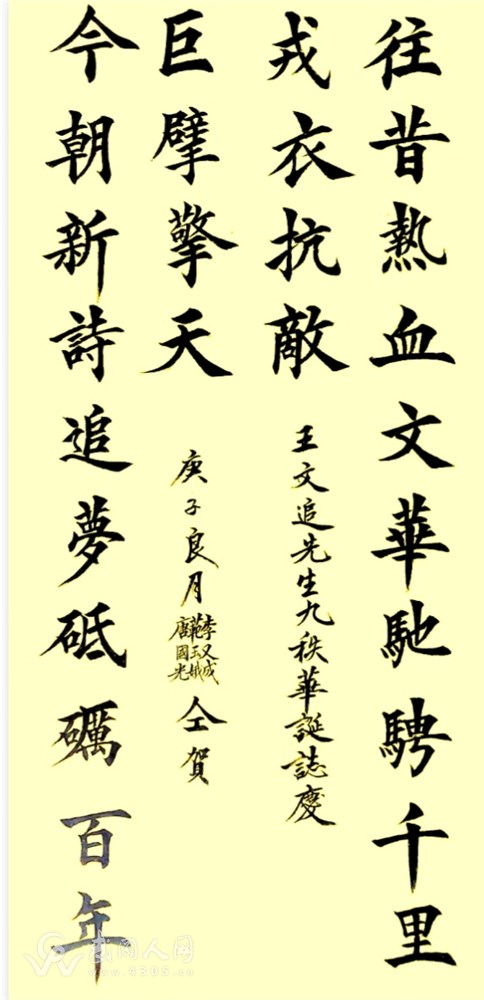 往昔熱血文華馳騁千里
戎衣抗敵
王文追先生九秩華誕誌慶
今朝新詩追夢砥礪百年
巨擘擎天
庚子良月
李又成
唐國光
仝賀
武冈人网
www.4305.cn